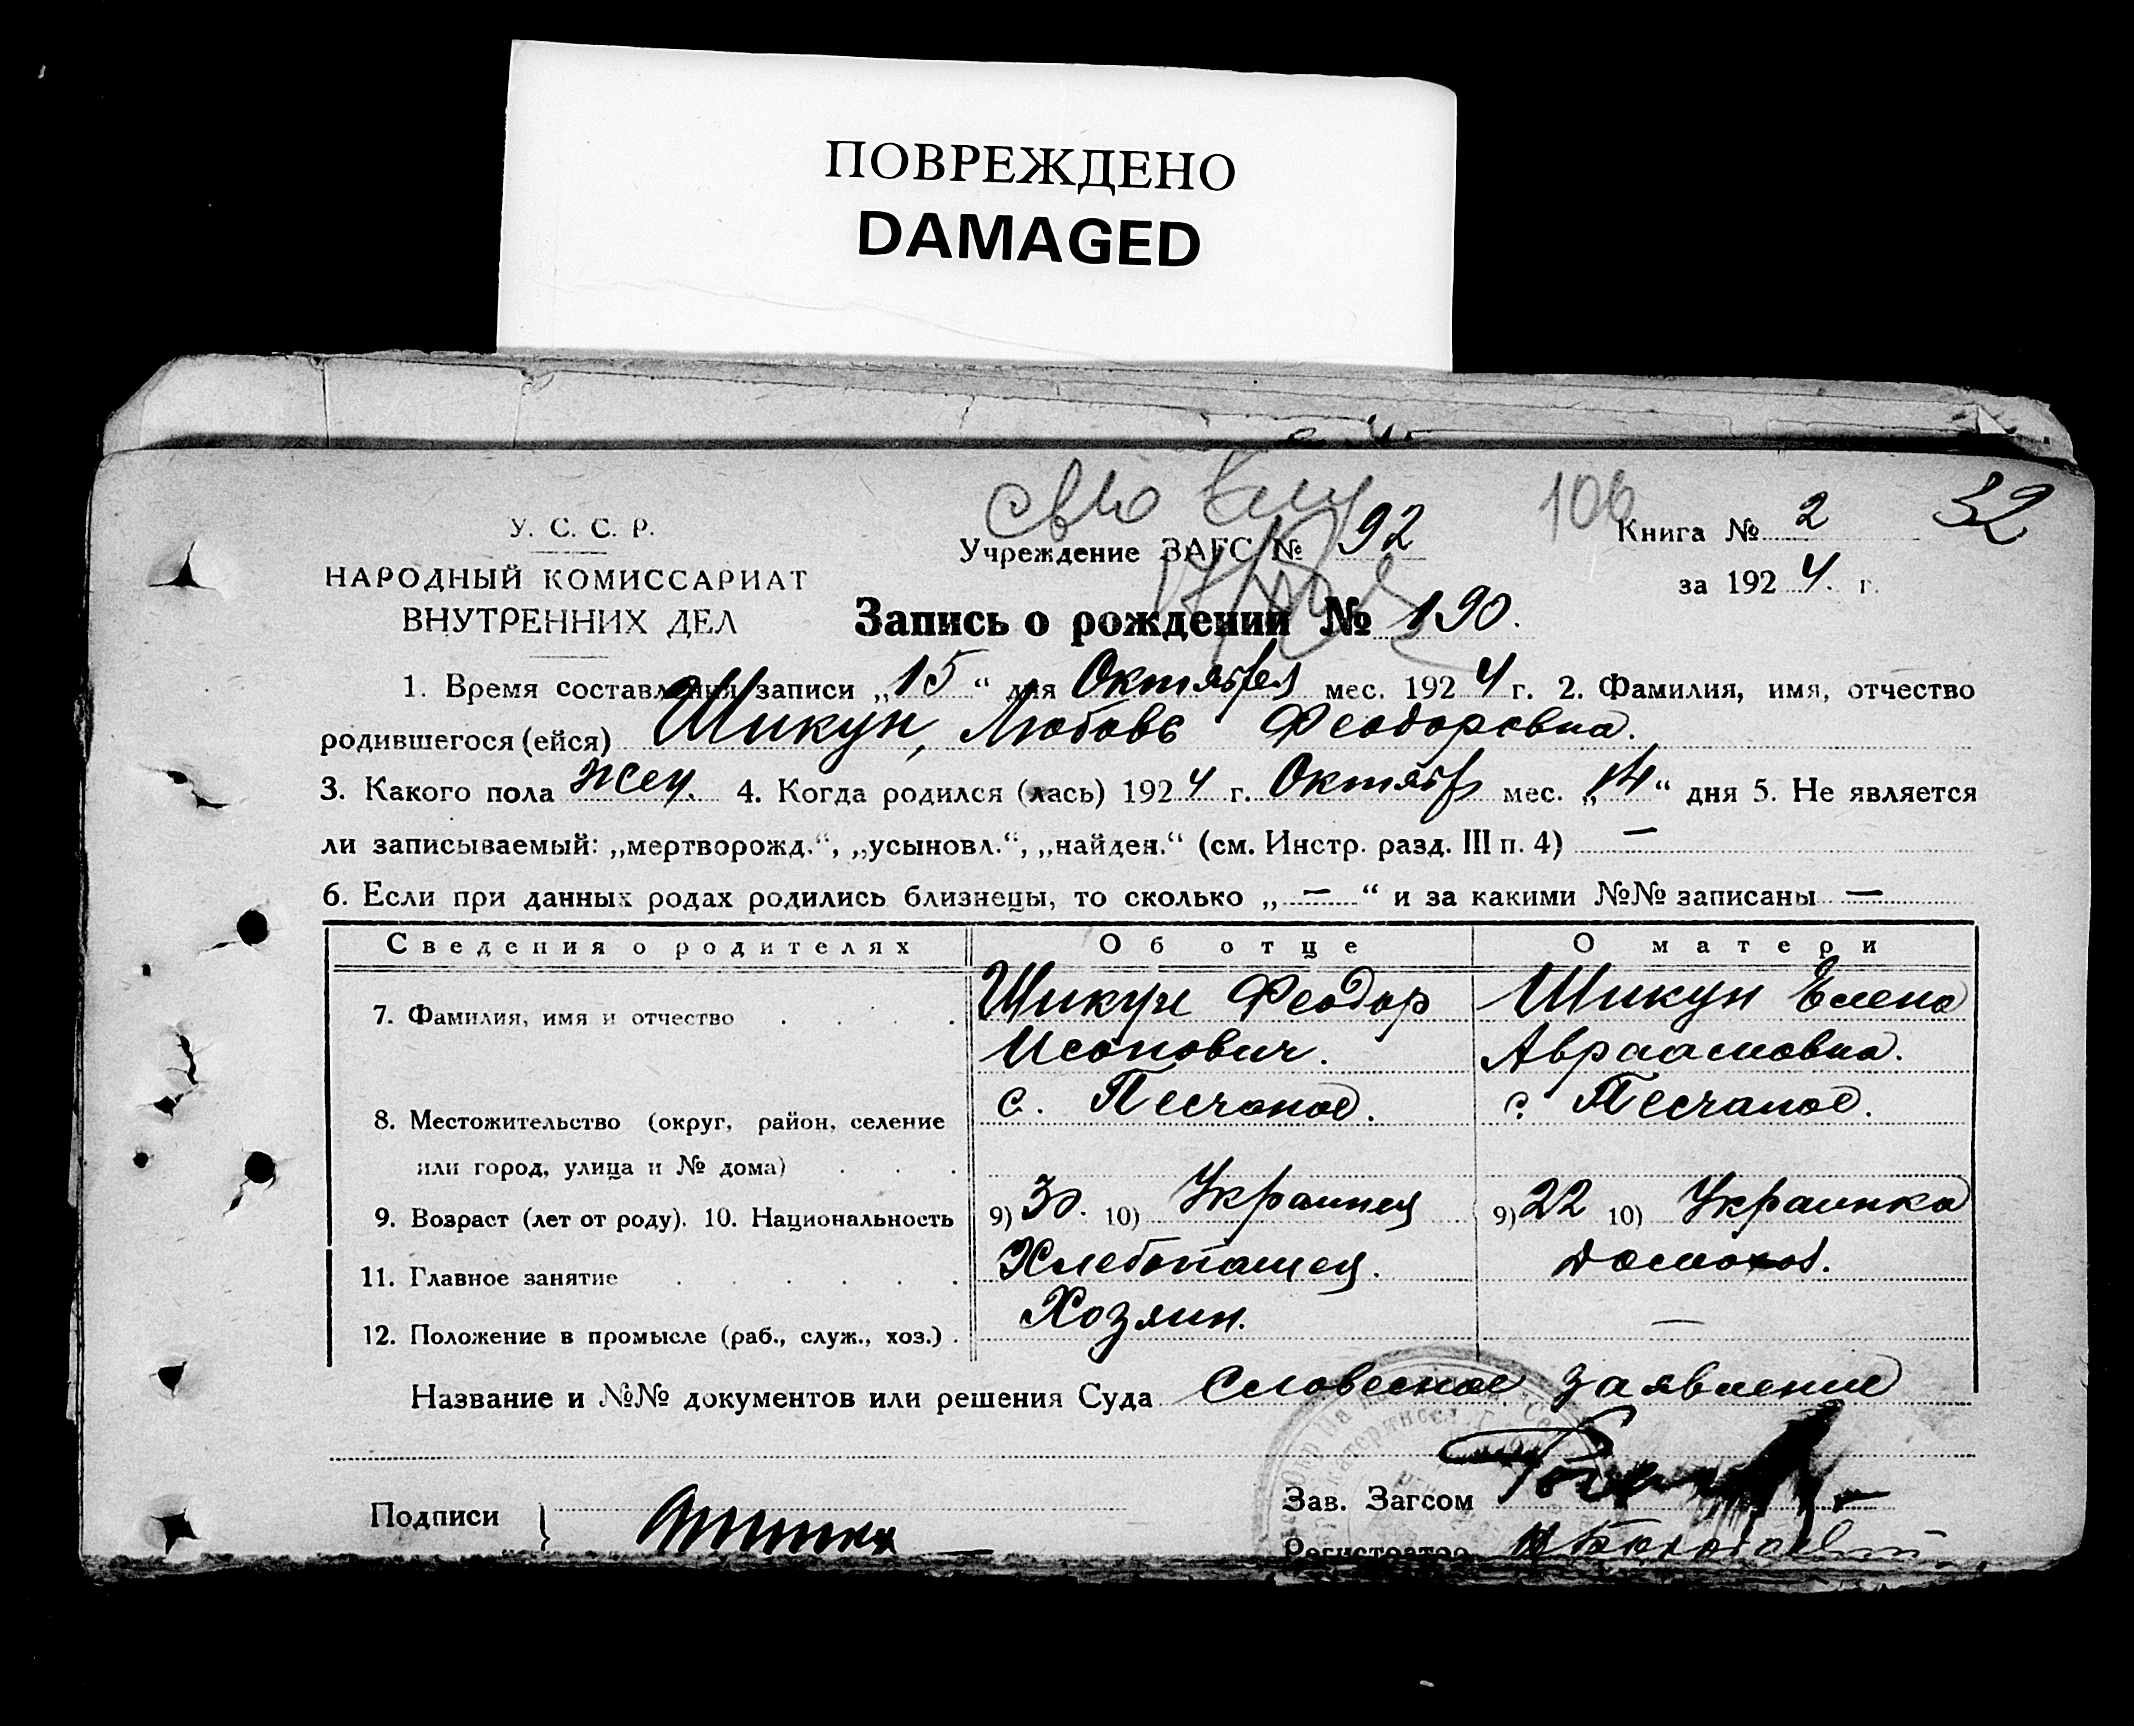 ПОВРЕЖДЕНО
DAMAGED
106
32
У. С. С. Р.
НАРОДНЫЙ КОМИССАРИАТ
ВНУТРЕННИХ ДЕЛ
Учреждение ЗАГС № 92
Книга № 2
за 1924 г.
Запись о рождении № 190.
1. Время составления записи „15“ дня Октября мес. 1924 г. 2. Фамилия, имя, отчество
родившегося (ейся) Шикун, Любовь Феодоровна.
3. Какого пола жен. 4. Когда родился (лась) 1924 г. Октябр мес. „14“ дня 5. Не является
ли записываемый: „мертворожд.“, „усыновл.“, „найден.“ (см. Инстр. разд. III п. 4) —
6. Если при данных родах родились близнецы, то сколько „—“ и за какими №№ записаны —
Сведения о родителях Об отце О матери
7. Фамилия, имя и отчество . . . . Шикун Феодор Шикун Елена
Исопович. Авраамовна.
8. Местожительство (округ, район, селение с. Песчаное. с. Песчаное.
или город, улица и № дома) . . .
9. Возраст (лет от роду). 10. Национальность 9) 30. 10) Украинец 9) 22 10) Украинка
11. Главное занятие . . . . . . Хлебопашец. домохоз.
12. Положение в промысле (раб., служ., хоз.) . Хозяин. —
Название и №№ документов или решения Суда Словесное заявление
Подписи
Зав. Загсом
Регистратор